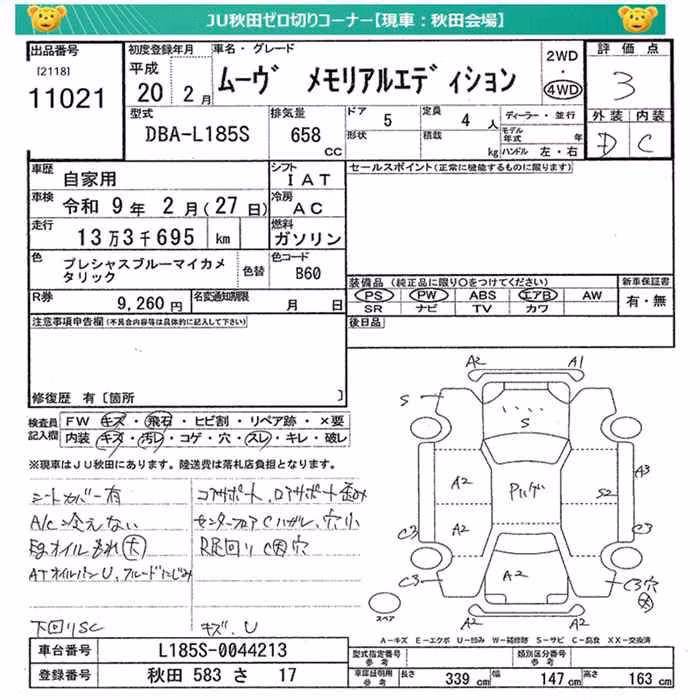 JU秋田ゼロ切りコーナー【現車：秋田会場】
出品番号 初度登録年月 車名・グレード 2WD・4WD 評価点
[2118] 平成 ムーヴ メモリアルエディション 3
11021 20年 2月
型式 排気量 ドア 5 定員 4人 ディーラー・並行 外装 内装
DBA-L185S 658 CC 形状 積載 kg モデル年式 年 D C
ハンドル 左・右
車歴 自家用 シフト IAT セールスポイント(正常に機能するものに限ります)
車検 令和 9年 2月(27日) 冷房 AC
走行 13万3千695 km 燃料 ガソリン
色 プレシャスブルーマイカメタリック 色替 色コード B60
装備品（純正品に限り○をつけてください） 新車保証書
PS PW ABS エアB AW 有・無
SR ナビ TV カワ
R券 9,260円 名変通知期限 月 日
後日品
注意事項申告欄(不具合内容等は具体的に記入して下さい)
修復歴 有〔箇所 〕
検査員記入欄 FW キズ・飛石・ヒビ割・リペア跡・×要
内装 キズ・汚レ・コゲ・穴・スレ・キレ・破レ
※現車はJU秋田にあります。陸送費は落札店負担となります。
シートカバー有
A/C冷えない
Egオイルもれ(大)
ATオイルパンU、フルードにじみ
下回りSC
コアサポート、ロアサポート歪み
センターフロアCハガレ、穴小
R足回りC穴
キズ、U
A2 A1
S S
A2 A3
S2
A2
C3 C3
A2
C3 C3穴大
A2 A2
スペア
A－キズ E－エクボ U－凹み W－補修跡 S－サビ C－腐食 XX－交換済
車台番号 L185S-0044213
登録番号 秋田 583 さ 17
型式指定番号 参考 類別区分番号 参考
車庫証明用 参考 長さ 339 cm 幅 147 cm 高さ 163 cm